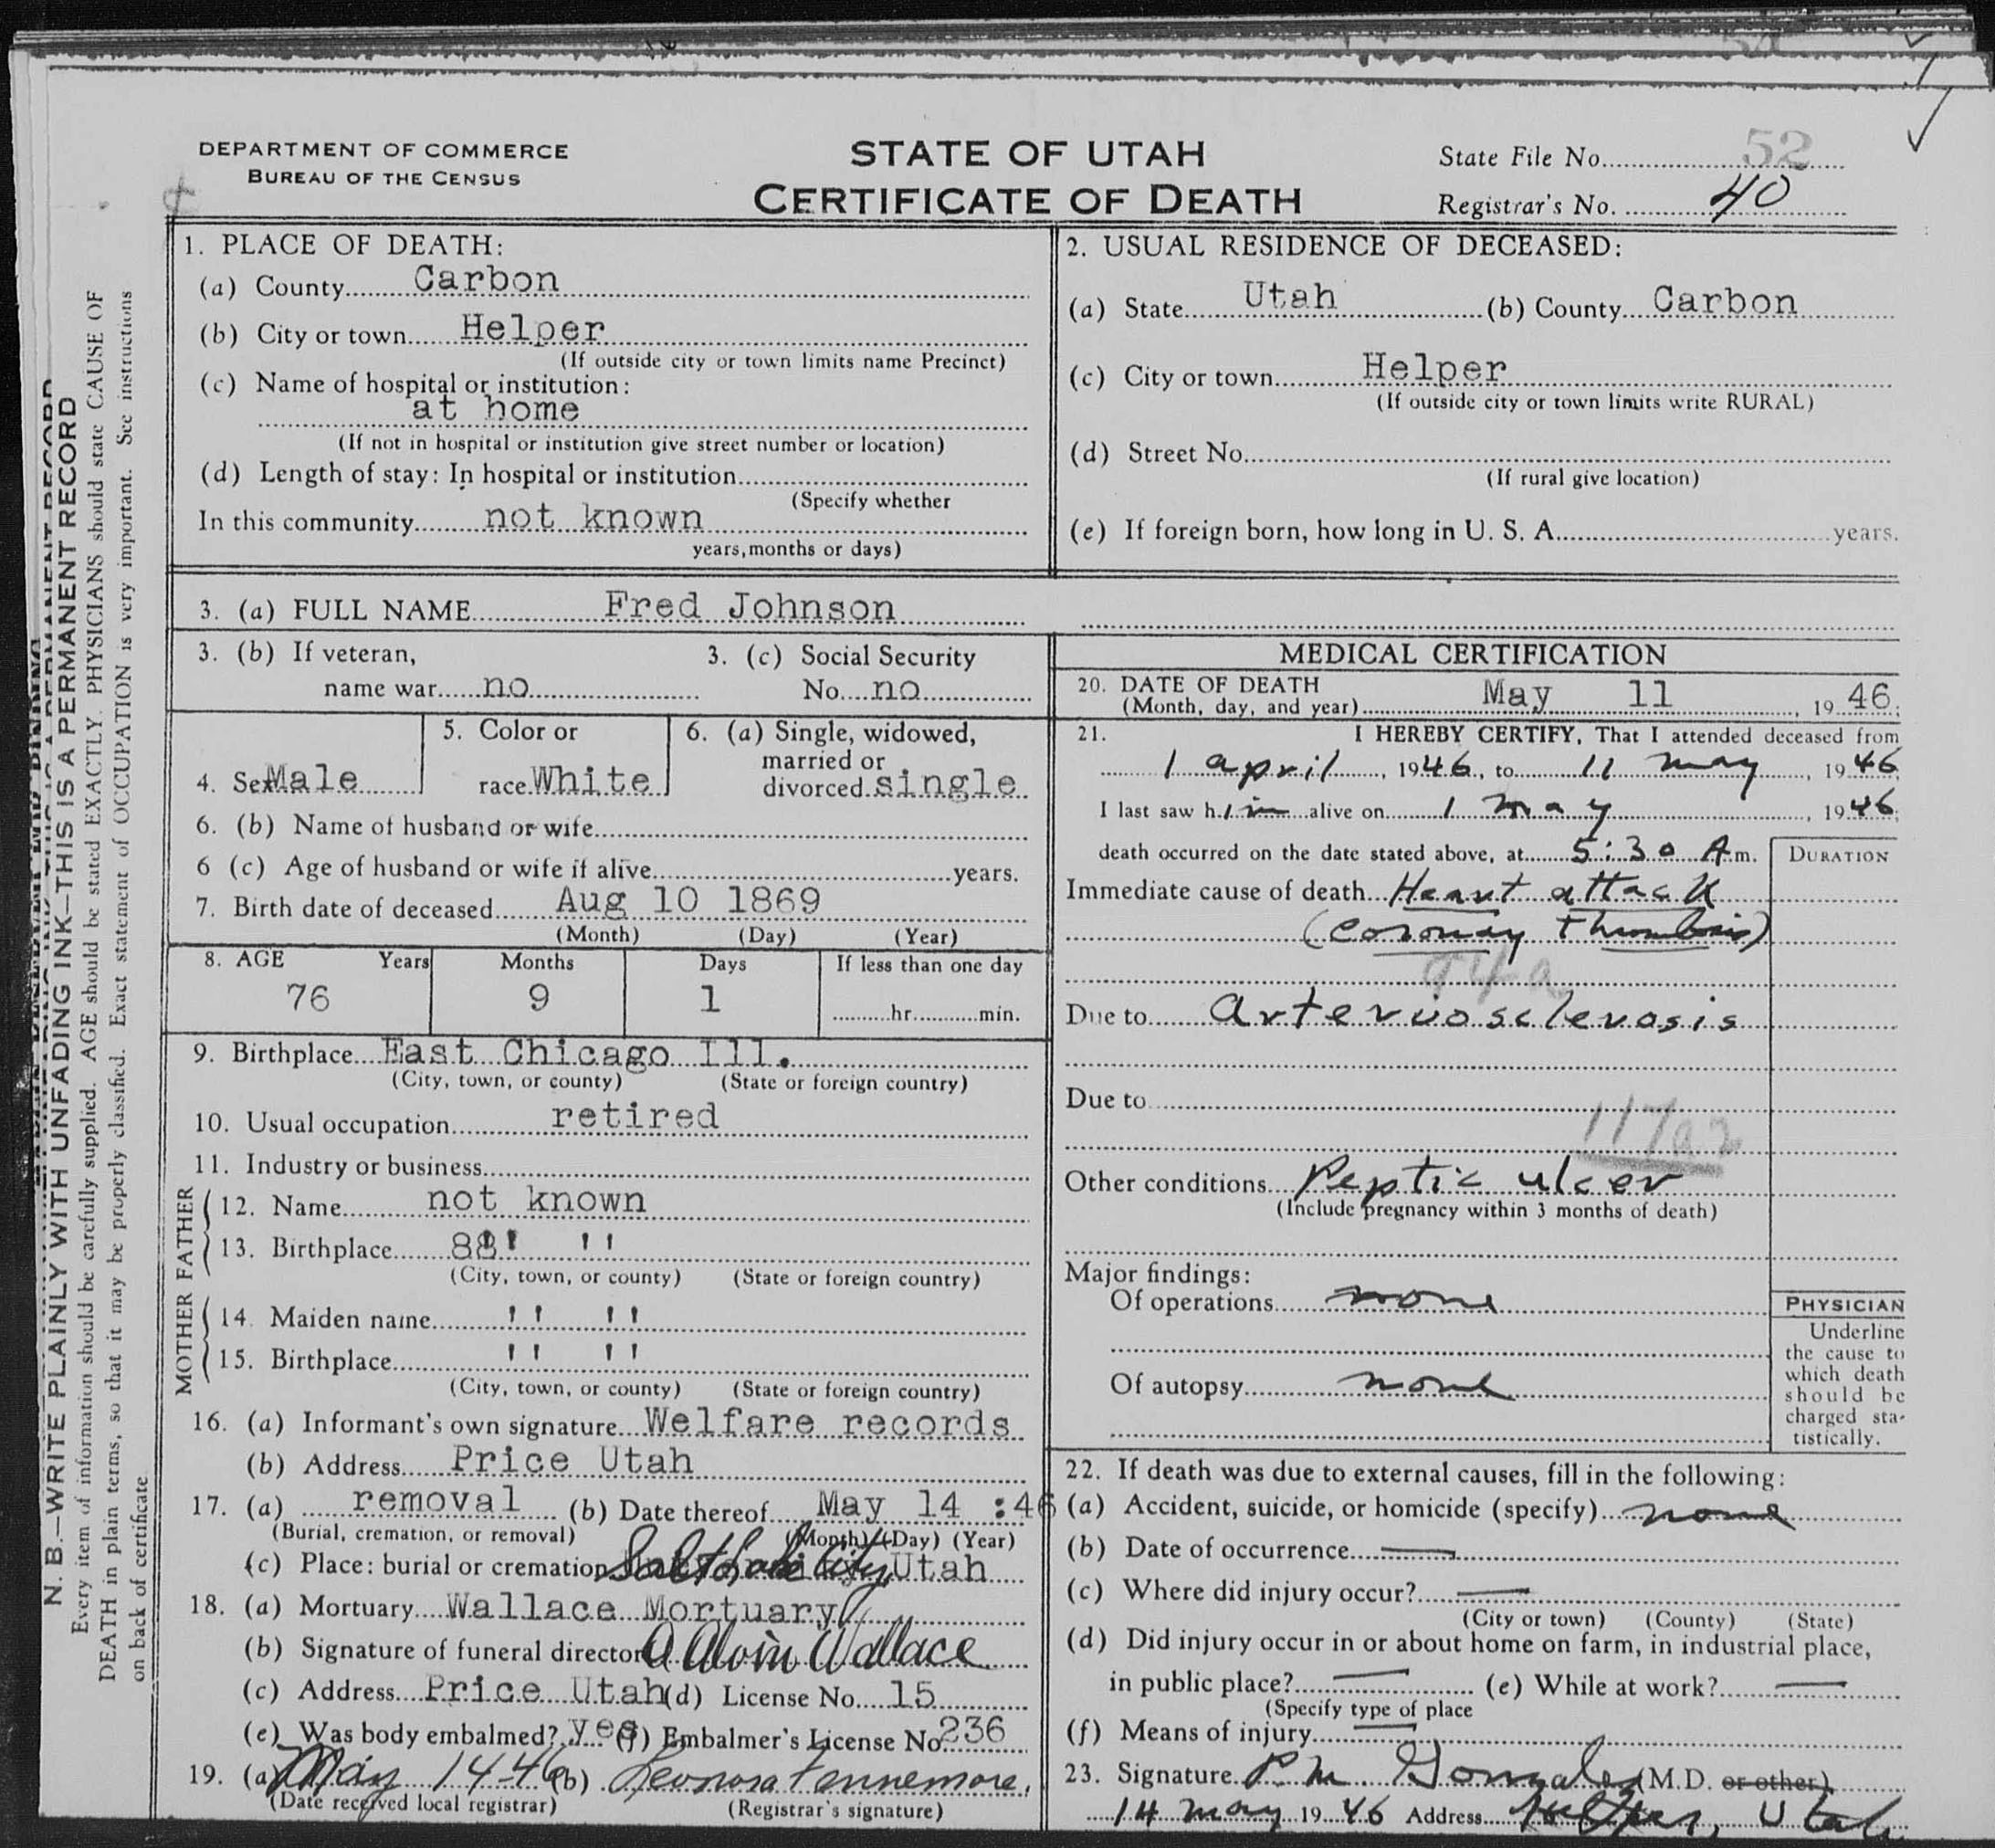 DEPARTMENT OF COMMERCE
BUREAU OF THE CENSUS
STATE OF UTAH
CERTIFICATE OF DEATH
State File No. 52
Registrar's No. 40
N. B.—WRITE PLAINLY WITH UNFADING INK—THIS IS A PERMANENT RECORD
Every item of information should be carefully supplied. AGE should be stated EXACTLY. PHYSICIANS should state CAUSE OF
DEATH in plain terms, so that it may be properly classified. Exact statement of OCCUPATION is very important. See instructions
on back of certificate
1. PLACE OF DEATH:
(a) County Carbon
(b) City or town Helper
(If outside city or town limits name Precinct)
(c) Name of hospital or institution:
at home
(If not in hospital or institution give street number or location)
(d) Length of stay: In hospital or institution
(Specify whether
In this community not known
years, months or days)
2. USUAL RESIDENCE OF DECEASED:
(a) State Utah (b) County Carbon
(c) City or town Helper
(If outside city or town limits write RURAL)
(d) Street No.
(If rural give location)
(e) If foreign born, how long in U. S. A. years.
3. (a) FULL NAME Fred Johnson
3. (b) If veteran,
name war no
3. (c) Social Security
No. no
4. Sex Male
5. Color or
race White
6. (a) Single, widowed,
married or
divorced single
6. (b) Name of husband or wife
6 (c) Age of husband or wife if alive years.
7. Birth date of deceased Aug 10 1869
(Month) (Day) (Year)
8. AGE Years Months Days If less than one day
76 9 1 hr. min.
9. Birthplace East Chicago Ill.
(City, town, or county) (State or foreign country)
10. Usual occupation retired
11. Industry or business
FATHER
12. Name not known
13. Birthplace " "
(City, town, or county) (State or foreign country)
MOTHER
14. Maiden name " "
15. Birthplace " "
(City, town, or county) (State or foreign country)
16. (a) Informant's own signature Welfare records
(b) Address Price Utah
17. (a) removal (b) Date thereof May 14 :46
(Burial, cremation, or removal) (Month) (Day) (Year)
(c) Place: burial or cremation Salt Lake City, Utah
18. (a) Mortuary Wallace Mortuary
(b) Signature of funeral director A Alvin Wallace
(c) Address Price Utah (d) License No. 15
(e) Was body embalmed? yes (f) Embalmer's License No. 236
19. (a) May 14-46 (b) Leonora Fennemore,
(Date received local registrar) (Registrar's signature)
MEDICAL CERTIFICATION
20. DATE OF DEATH
(Month, day, and year) May 11, 1946.
21. I HEREBY CERTIFY, That I attended deceased from
1 april, 1946, to 11 may, 1946
I last saw him alive on 1 may, 1946.
death occurred on the date stated above, at 5:30 A.m.
DURATION
Immediate cause of death Heart attack
(Coronay Thrombosis)
94a
Due to Arteriosclerosis
Due to
117a2
Other conditions Peptic ulcer
(Include pregnancy within 3 months of death)
Major findings:
Of operations none
Of autopsy none
PHYSICIAN
Underline
the cause to
which death
should be
charged sta-
tistically.
22. If death was due to external causes, fill in the following:
(a) Accident, suicide, or homicide (specify) none
(b) Date of occurrence —
(c) Where did injury occur? —
(City or town) (County) (State)
(d) Did injury occur in or about home on farm, in industrial place,
in public place? — (e) While at work? —
(Specify type of place
(f) Means of injury —
23. Signature P. M. Gonzales (M.D. or other)
14 may 1946 Address Helper, Utah